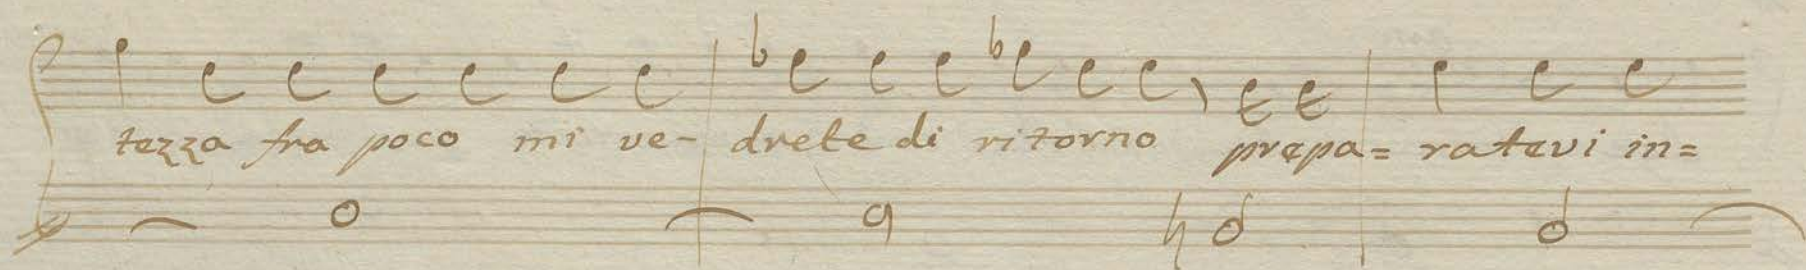 tezza fra poco mi ve- drete di ritorno prepa= ratevi in=